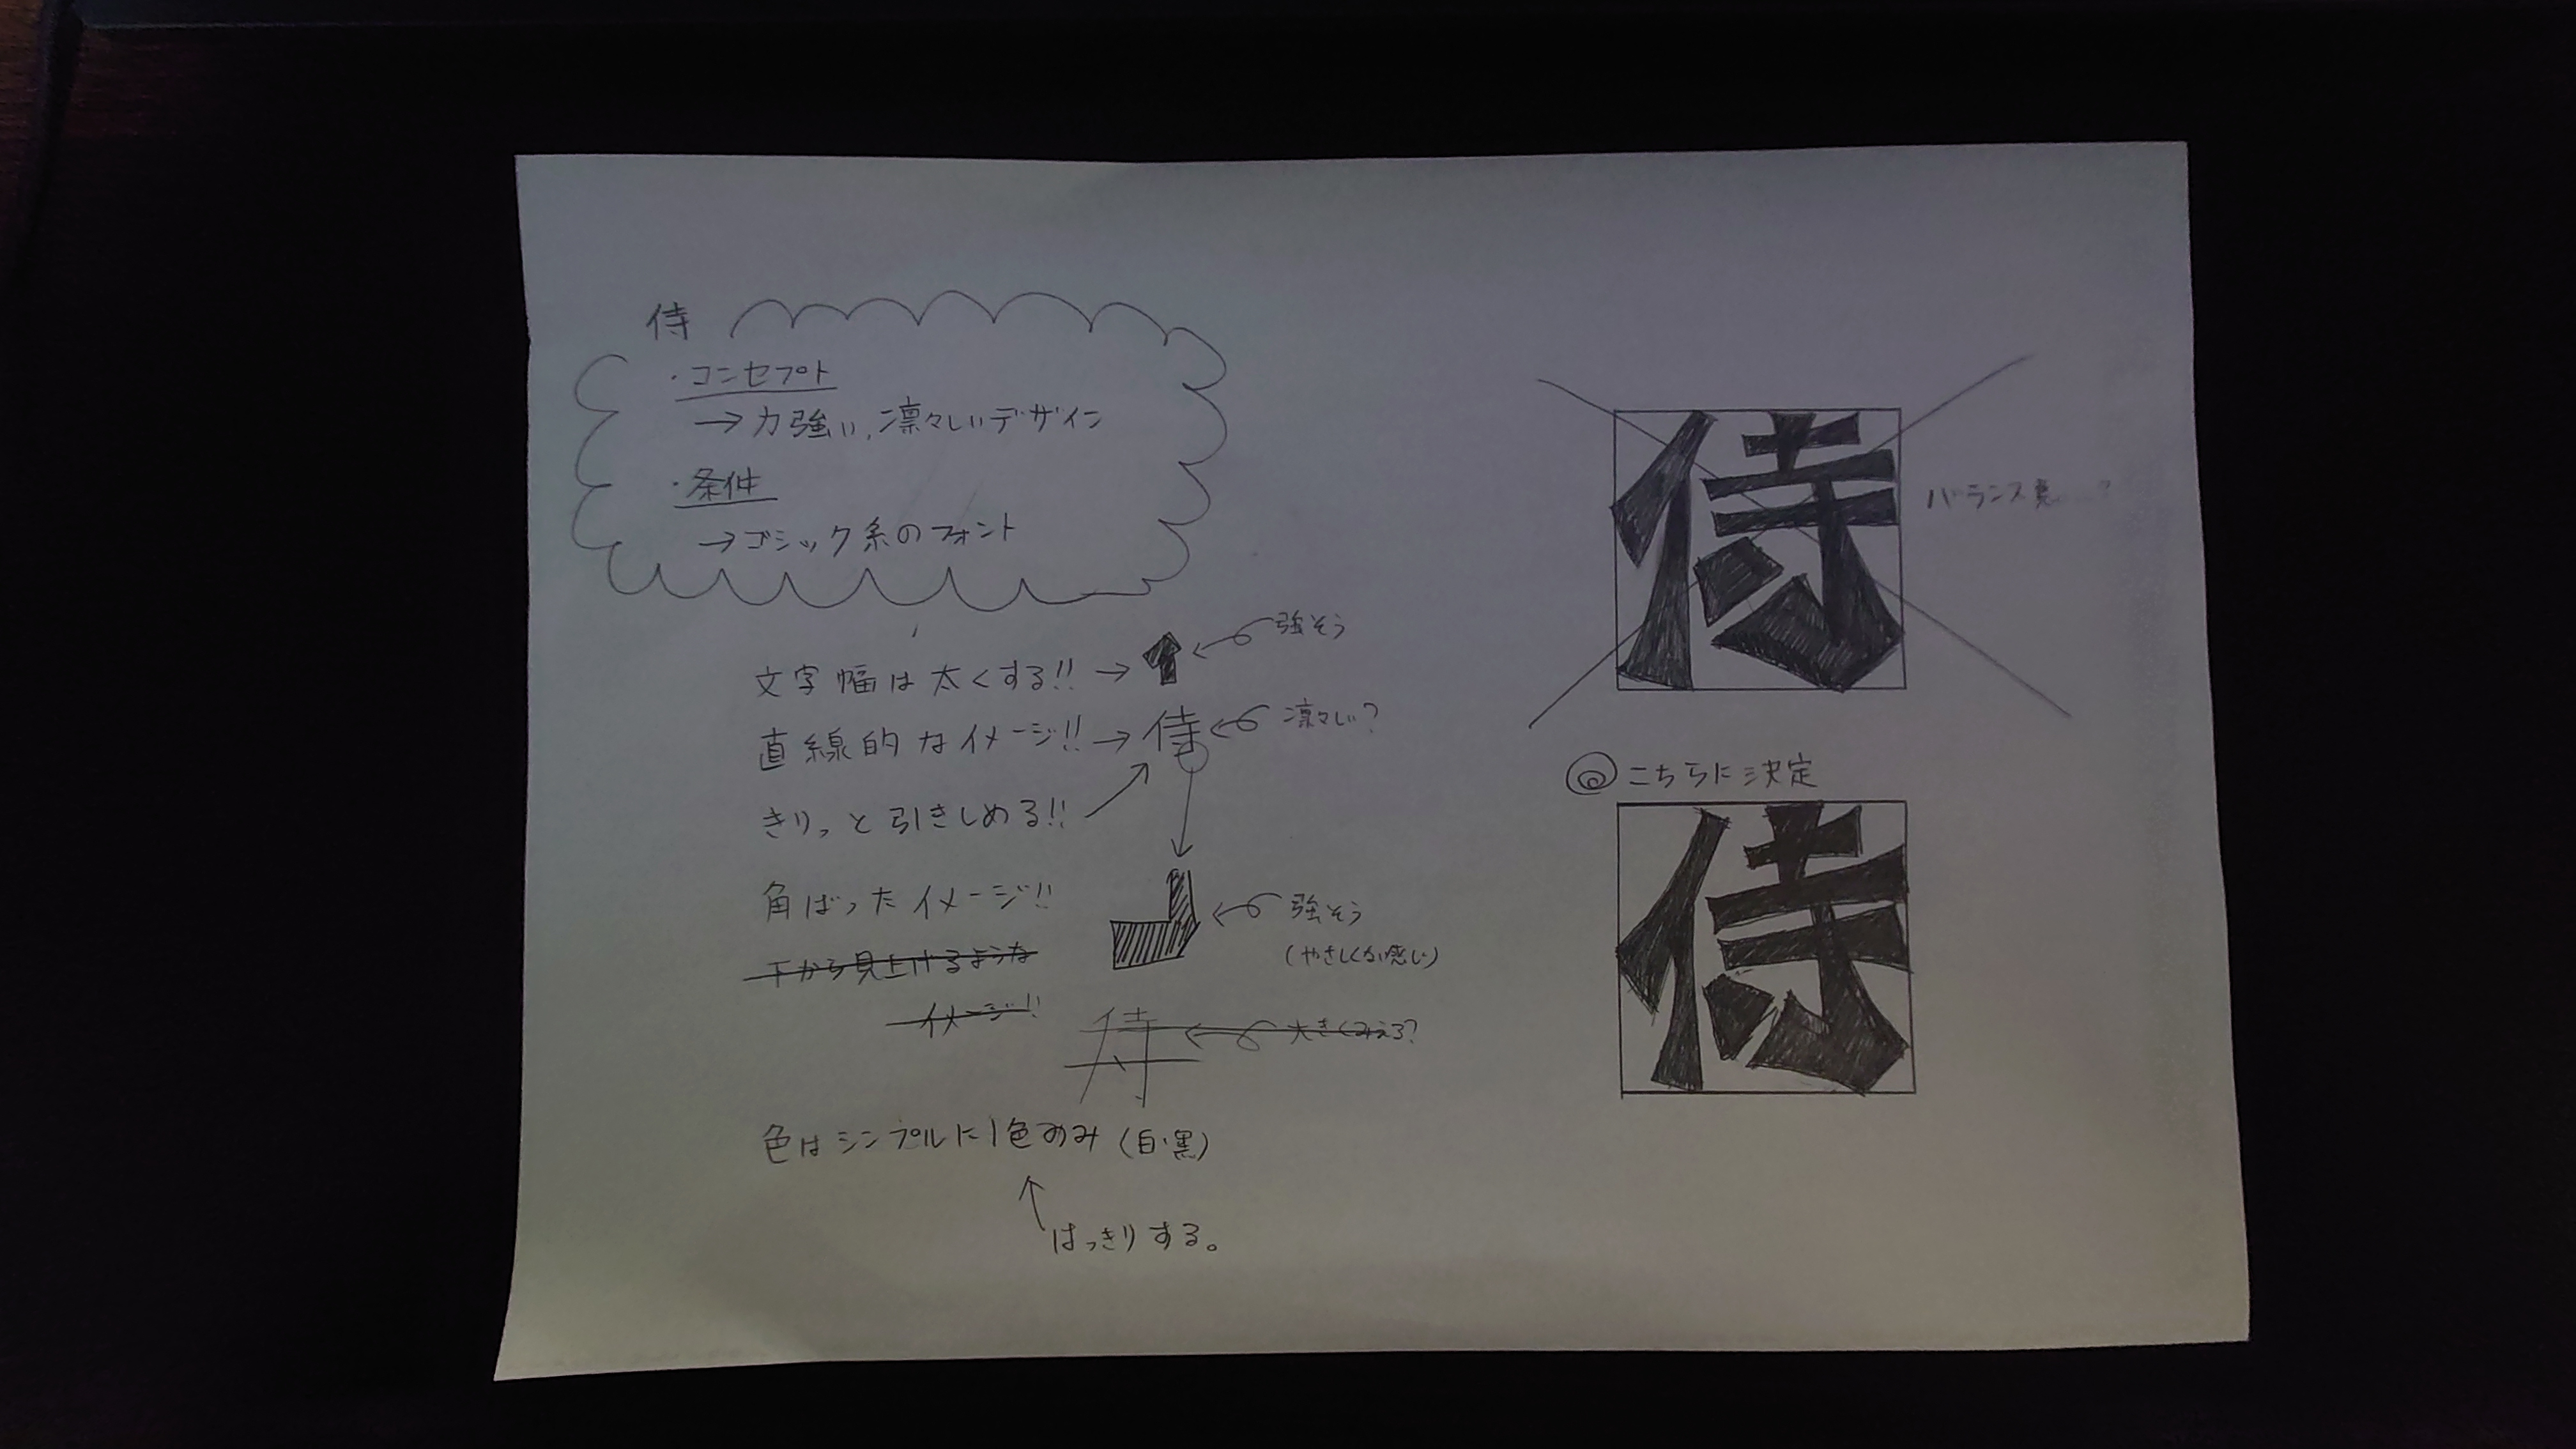 侍
・コンセプト
→力強い、凛々しいデザイン
・条件
→ゴシック系のフォント
文字幅は太くする!! →
強そう
直線的なイメージ!! → 侍
凛々しい?
きりっと引きしめる!!
角ばったイメージ!!
強そう
(やさしくない感じ)
下から見上げるような
イメージ!!
侍
大きくみえる?
色はシンプルに1色のみ (白・黒)
はっきりする。
侍
バランス悪……?
◎こちらに決定
侍